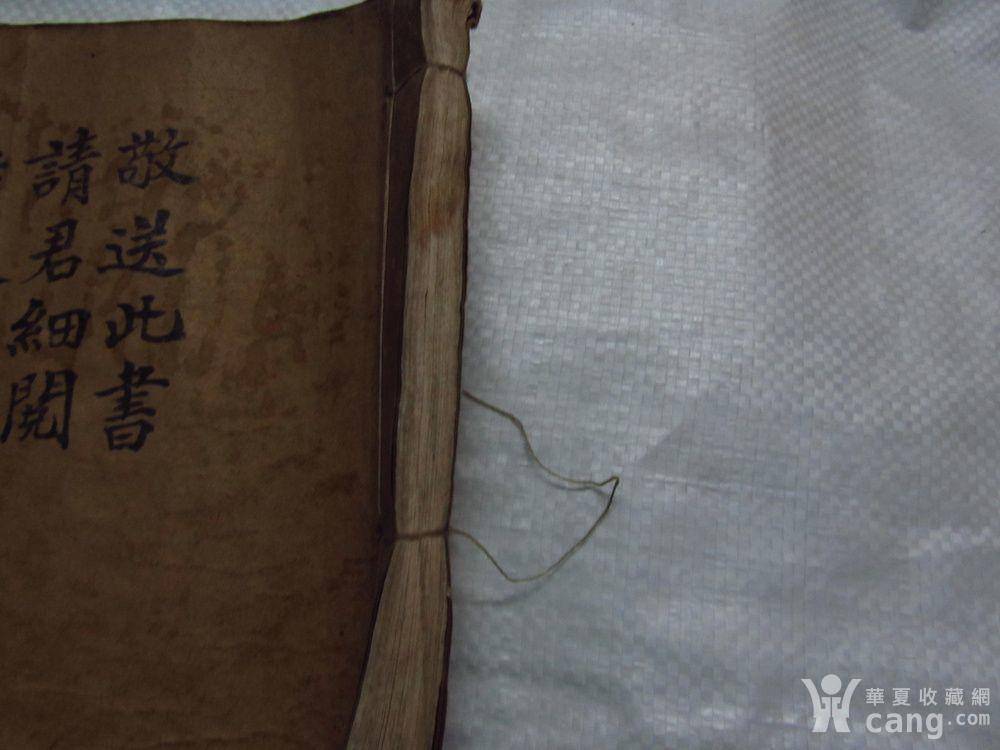 敬送此書
請君細閱
華夏收藏網
cang.com